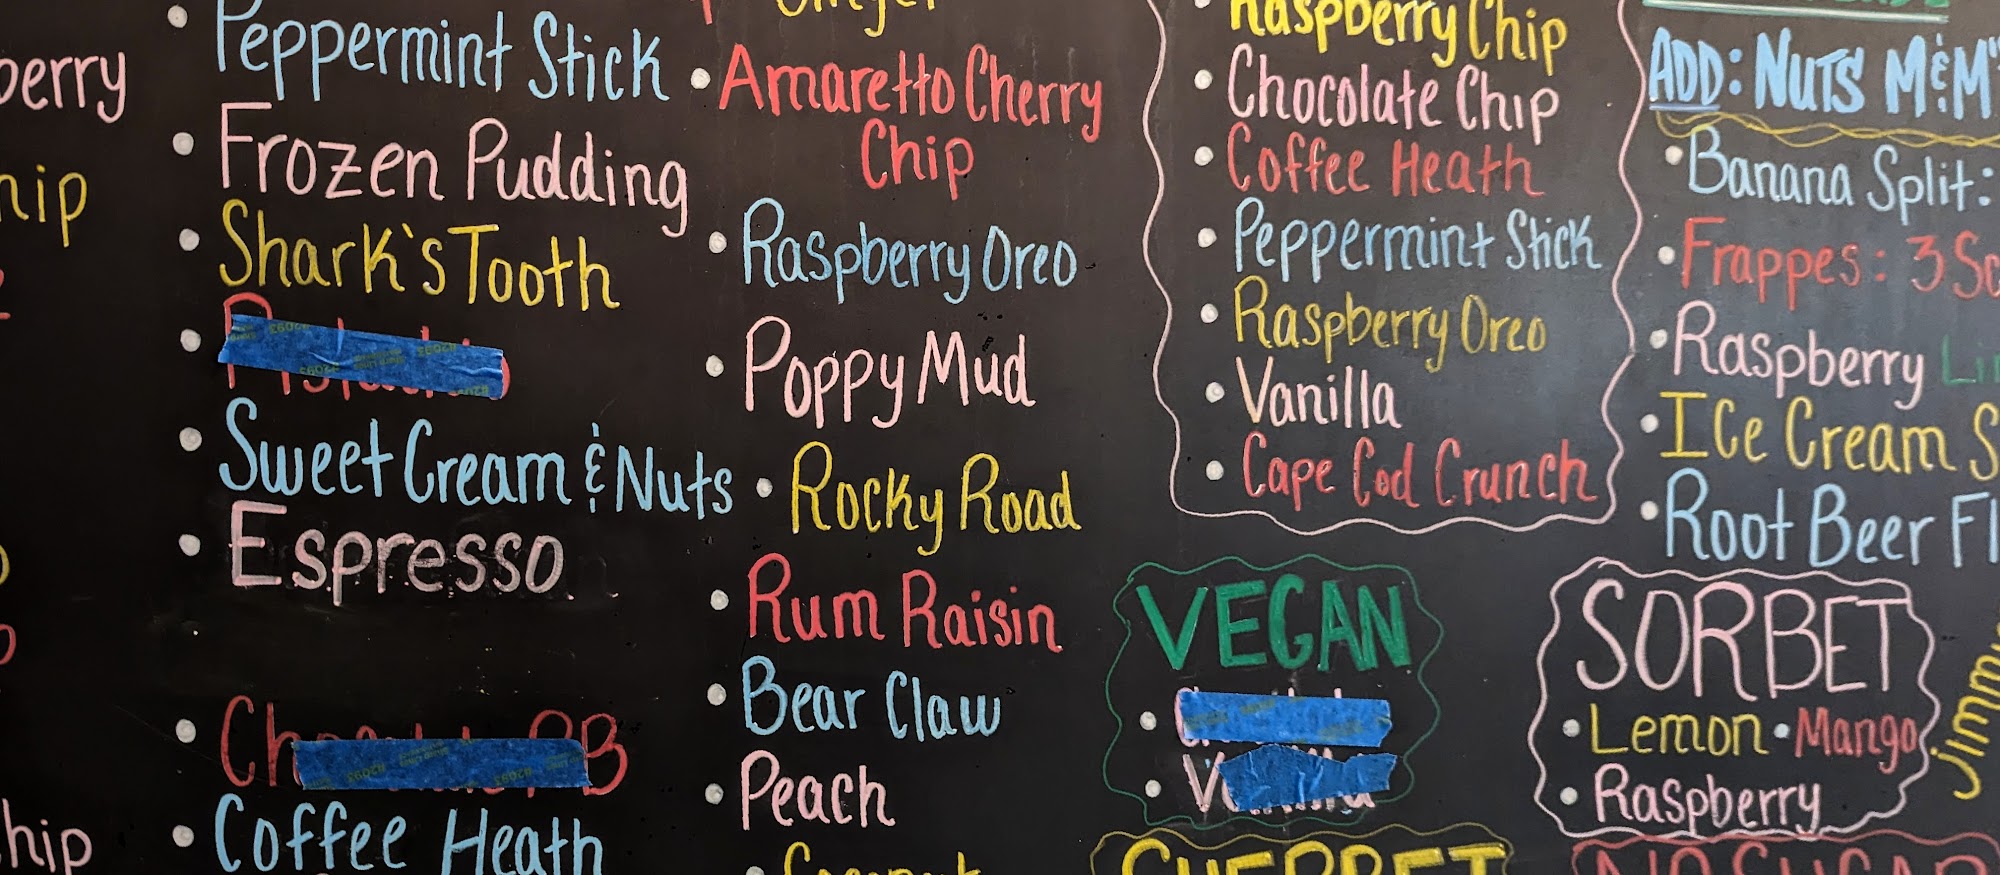 berry
hip
hip
Peppermint Stick
Frozen Pudding
Shark's Tooth
Sweet Cream & Nuts
Espresso
Coffee Heath
Ginger
Amaretto Cherry
Chip
Raspberry Oreo
Poppy Mud
Rocky Road
Rum Raisin
Bear Claw
Peach
Coconut
Raspberry Chip
Chocolate Chip
Coffee Heath
Peppermint Stick
Raspberry Oreo
Vanilla
Cape Cod Crunch
VEGAN
SHERBET
ADD: NUTS M&M"
Banana Split:
Frappes: 3 Sc
Raspberry Li
Ice Cream S
Root Beer Fl
SORBET
Lemon • Mango
Raspberry
Jimm
NO SUGAR